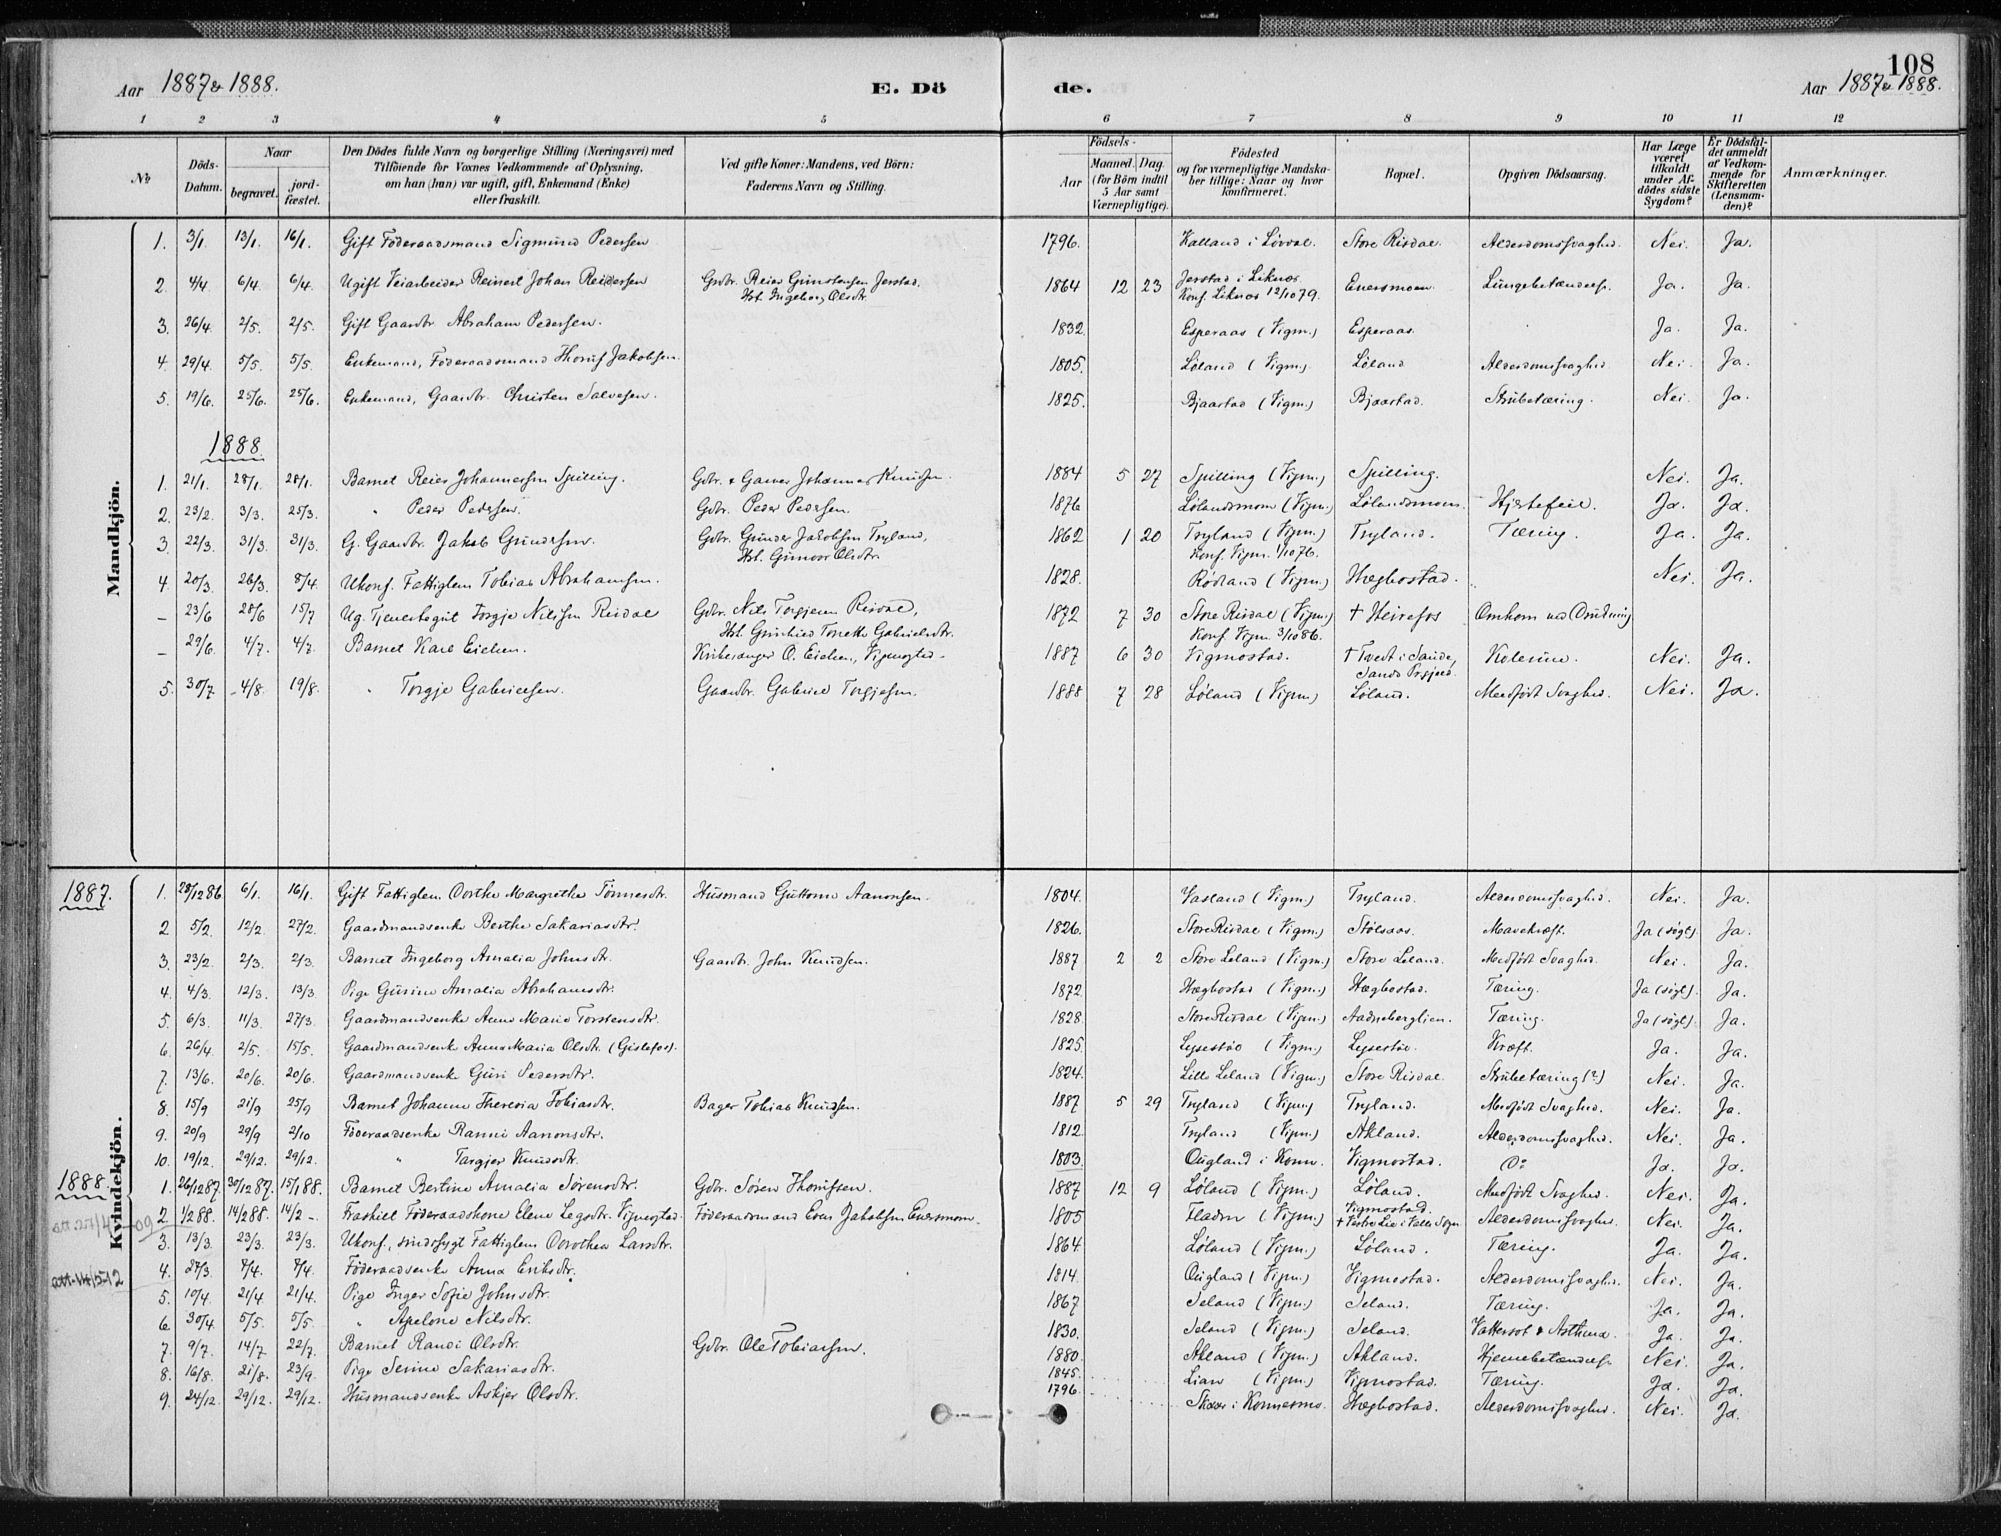 108
Aar 1887 & 1888.
E. Dö
de.
Aar 1887 & 1888.
1 2 3 4 5 6 7 8 9 10 11 12
No
Döds-Datum.
Naar
begravet.
jord-fæstet.
Den Dödes fulde Navn og borgerlige Stilling (Næringsvei) med
Tilföiende for Voxnes Vedkommende af Oplysning,
om han (hun) var ugift, gift, Enkemand (Enke)
eller fraskilt.
Ved gifte Koner: Mandens, ved Börn:
Faderens Navn og Stilling.
Födsels-
Aar
Maaned. Dag.
(for Börn indtil
5 Aar samt
Værnepligtige).
Födested
og for værnepligtige Mandska-
ber tillige: Naar og hvor
konfirmeret.
Bopæl.
Opgiven Dödsaarsag.
Har Læge
været
tilkaldt
under Af-
dödes sidste
Sygdom?
Er Dödsfal-
det anmeldt
af Vedkom-
mende for
Skifteretten
(Lensman-
den)?
Anmærkninger.
Mandkjön.
1. 3/1. 13/1. 16/1. Gift Föderaadsmand Sigmund Pedersen 1796. Kalland i Løvdal. Store Risdal. Alderdomssvaghed. Nei. Ja.
2. 4/4. 6/4. 6/4. Ugift Veiarbeider Reinert Johan Reiersen Grdbr. Reier Gunstensen Jerstad, 1864 12 23 Jerstad i Liknes. Enersmoen. Lungebetændelse. Ja. Ja.
Hst. Ingeborg Olsdtr. Konf. Liknes 12/10 79.
3. 26/4. 2/5. 2/5. Gift Gaardbr. Abraham Pedersen. 1832. Esperaas (Vigm.) Esperaas. Ja. Ja.
4. 29/4. 5/5. 5/5. Enkemand, Föderaadsmand Thoruf Jakobsen. 1805. Løland (Vigm.) Løland Alderdomssvaghed. Nei. Ja.
5. 19/6. 25/6. 25/6. Enkemand, Gaardbr. Christen Salvesen. 1825. Bjaarstad (Vigm.) Bjaarstad. Strubetæring. Nei. Ja.
1888.
1. 21/1. 28/1. 28/1. Barnet Reier Johannessen Spilling. Gdbr. & Garver Johannes Knudsen. 1884 5 27 Spilling (Vigm.) Spilling. Nei. Ja.
2. 23/2. 3/3. 25/3. " Peder Pedersen. Gdbr. Peder Pedersen. 1876 Lølandsmoen (Vigm.) Lølandsmoen. Hjertefeil. Ja. Ja.
3. 22/3. 31/3. 31/3. G. Gaardbr. Jakob Gundersen. Gdbr. Gunder Jakobsen Tryland, 1862 1 20 Tryland (Vigm.) Tryland. Tæring. Ja. Ja.
Hst. Gunvor Olsdtr. Konf. Vigm. 1/10 76.
4. 20/3. 26/3. 8/4. Ukonf. Fattiglem Tobias Abrahamsen. 1828. Rødland (Vigm.) Hægbostad. Nei. Ja.
– 23/6 28/6 15/7 Ug. Tjenestegut Torgje Nilssen Risdal Gdbr. Nils Torgjesen Risdal, 1872 7 30 Store Risdal (Vigm.) † Heirefos Omkom ved Drukning
Hst. Gunhild Tonette Gabrielsdtr. Konf. Vigm. 3/10 86.
– 29/6. 4/7. 4/7. Barnet Karl Eieken. Kirkesanger O. Eieken, Vigmostad. 1887 6 30 Vigmostad. † Tvedt i Sande, Kolerine. Nei. Ja.
Sands Prgjeld.
5. 30/7 4/8. 19/8. " Torgje Gabrielsen. Gaardbr. Gabriel Torgjesen. 1888 7 28 Løland (Vigm.) Løland. Medfødt Svaghed. Nei. Ja.
Kvindekjön.
1887.
1. 28/12 86. 6/1. 16/1. Gift Fattiglem Dorthe Margrethe Tønnesdtr. Husmand Guttorm Aanonsen. 1804. Vasland (Vigm.) Tryland. Alderdomssvaghed. Nei. Ja.
2 5/2. 12/2. 27/2. Gaardmandsenke Berthe Sakariasdtr. 1826. Store Risdal (Vigm.) Stølsaas. Mavekræft. Ja (søgt). Ja.
3. 23/2. 2/3. 2/3. Barnet Ingeborg Amalia Johnsdtr. Gaardbr. John Knudsen. 1887 2 2 Store Leland (Vigm.) Store Leland. Medfødt Svaghed. Nei. Ja.
4. 4/3. 12/3. 13/3. Pige Gurine Amalia Abrahamsdtr. 1872. Hægbostad (Vigm.) Hægbostad. Tæring. Ja (søgt). Ja.
5. 6/3. 11/3. 27/3. Gaardmandsenke Anne Marie Torstensdtr. 1828. Store Risdal (Vigm.) Aadneberglien. Tæring. Ja (søgt). Ja.
6. 26/4. 2/5. 15/5. Gaardmandsenke Anna Maria Olsdtr. (Gislefos). 1825. Lysestøl (Vigm.) Lysestøl. Kræft. Ja. Ja.
7. 13/6. 20/6. 20/6. Gaardmandsenke Guri Pedersdtr. 1824. Lille Leland (Vigm.) Store Risdal. Strubetæring (?) Nei. Ja.
8. 15/9 21/9 25/9 Barnet Johanne Theresia Tobiasdtr. Bager Tobias Knudsen. 1887 5 29 Tryland (Vigm.) Tryland. Medfødt Svaghed. Nei. Ja.
9. 20/9 29/9 2/10 Föderaadsenke Ranni Aanonsdtr. 1812. Tryland (Vigm.) Akland. Alderdomssvaghed. Nei. Ja.
10. 19/12. 29/12. 29/12. " Targjer Knudsdtr. 1803. Ougland i Konn. Vigmostad. Do Ja. Ja.
1888.
1. 26/12 87. 30/12 87. 15/1 88. Barnet Bertine Amalia Sørensdtr. Gdbr. Søren Thorufsen. 1887 12 9 Løland (Vigm.) Løland. Medfødt Svaghed. Nei. Ja.
att. 27/4 – 09
2. 1/2 88. 14/2 88. 14/2 –. Fraskilt Föderaadskone Elene Legsdtr. Vigmostad. Föderaadsmand Even Jakobsen Enersmoen. 1805 Fladen (Vigm.) Vigmostad. Alderdomssvaghed. Nei. Ja.
3. 13/3. 23/3. 23/3. Ukonf., sindssygt Fattiglem Dorothea Larsdtr. 1864. Løland (Vigm.) Løland. Tæring. Ja. Ja.
att. 14/5-12
4. 27/3. 7/4. 7/4. Föderaadsenke Anna Eriksdtr. 1814. Ougland (Vigm.) Vigmostad. Alderdomssvaghed. Nei. Ja.
5. 10/4. 21/4. 21/4. Pige Inger Sofie Johnsdtr. 1867 Seland (Vigm.) Seland. Tæring. Ja. Ja.
6 30/4 5/5. 5/5. " Apelone Nilsdtr. 1830. Seland (Vigm.) Seland. Vattersot & Asthma. Ja. Ja.
7. 9/7. 14/7 22/7. Barnet Randi Olsdtr. Gdbr. Ole Tobiassen. 1880. Akland (Vigm.) Akland. Hjernebetændelse. Nei. Ja.
8. 16/8. 21/8. 23/9. Pige Serine Sakariasdtr. 1845. Lian (Vigm.) Vigmostad. Tæring. Ja. Ja.
9. 24/12. 29/12. 29/12. Husmandsenke Askjer Olsdtr. 1796. i Konnesmo. Hægbostad. Alderdomssvaghed. Nei. Ja.